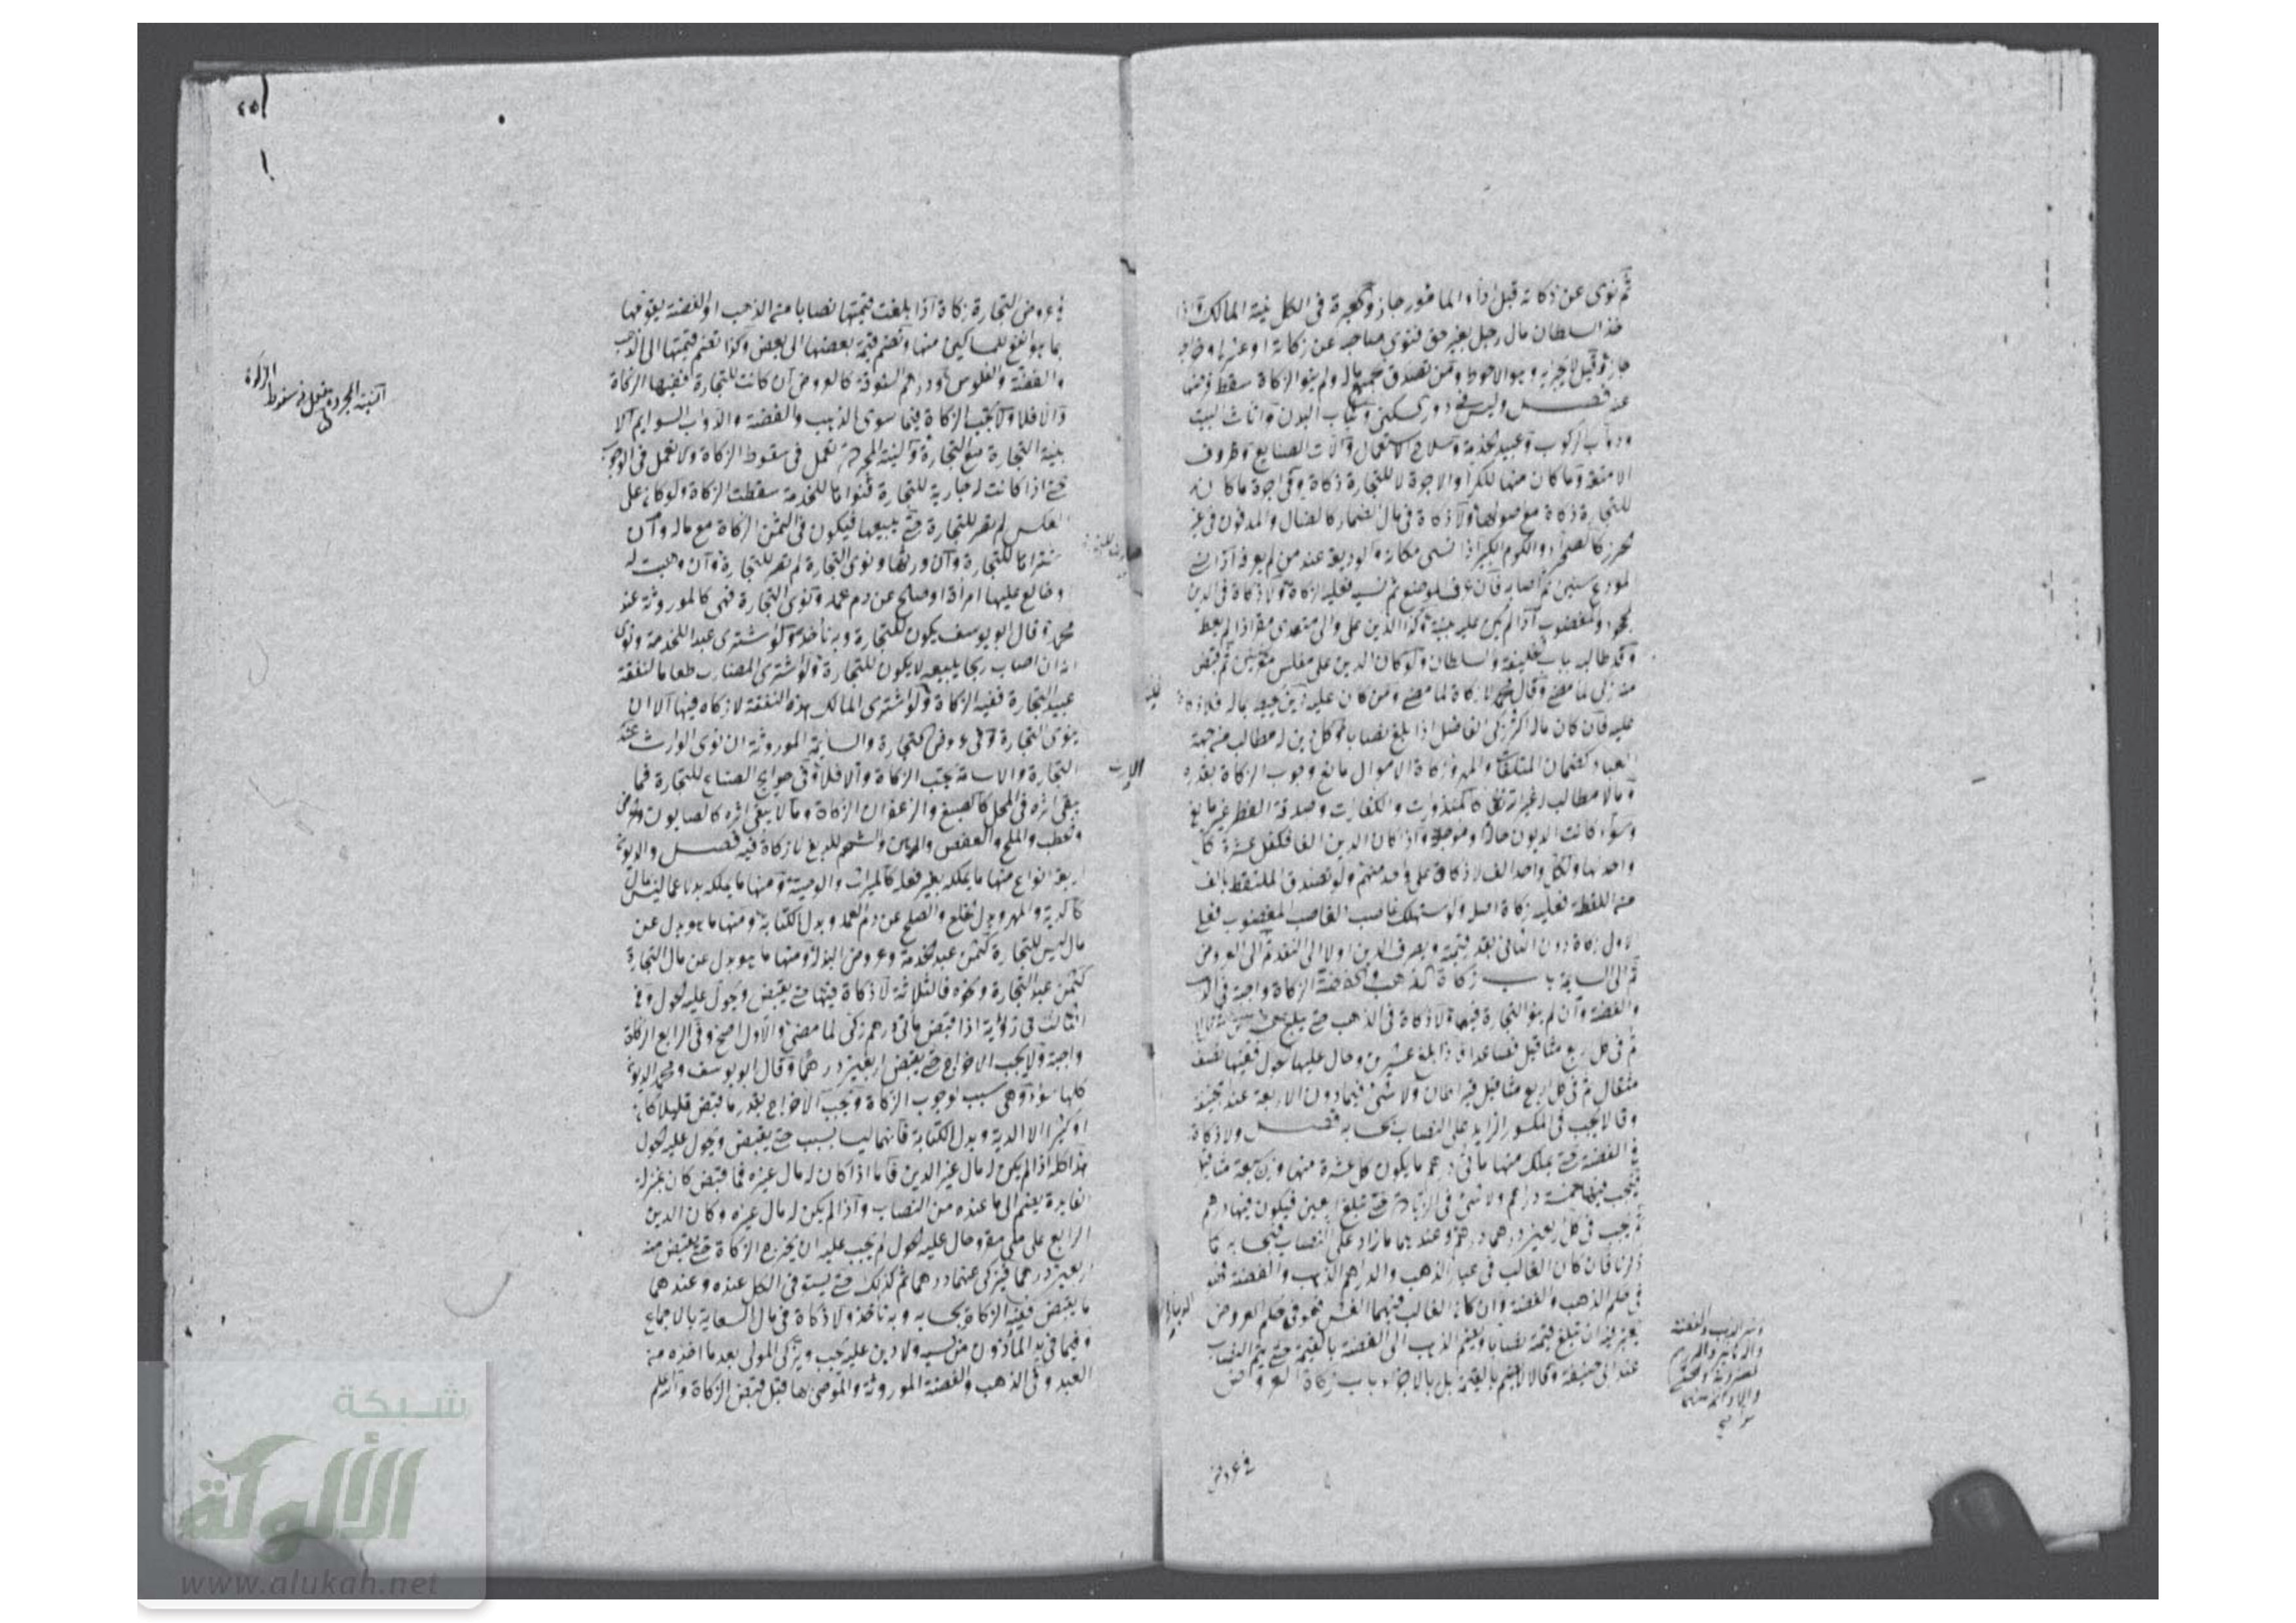 ثم نوى عن زكاته قبل أداء المأمور جاز والعبرة في الكل لنية المالك واذا
اخذ السلطان مال رجل بغير حق فنوى صاحبه عن زكاته او عشره او خراجه
جاز وقيل لا يجزيه وهو الاحوط ومن تصدق بجميع ماله ولم ينو الزكاة سقط فرضها
عنه فصل وليس في دور السكنى وثياب البدن واثاث البيت
ودواب الركوب وعبيد الخدمة وسلاح الاستعمال وآلات الصنايع وظروف
الامتعة وما كان منها للكراء والاجرة لا للتجارة زكاة وفي اجرة ما كان
للتجارة زكاة مع اصولها ولا زكاة في مال الضمار كالضال والمدفون في غير
محرز كالصحراء والكرم الكبير اذا نسي مكانه والوديعة عند من لم يعرفه اذا نسي
المودع سنين ثم اصابه فان عرف المودع ثم نسيه فعليه الزكاة ولا زكاة في الدين
المجحود والمغصوب اذا لم يكن عليه بينة وكذا الدين على والي متعدي مقر اذا لم يعط
وقد طالبه بباب الخليفة والسلطان ولو كان الدين على مفلس مقر سنين ثم قبض
منه زكى لما مضى وقال محمد لا زكاة لما مضى ومن كان عليه دين يحيط بماله فلا زكاة
عليه فان كان ماله اكثر زكى الفاضل اذا بلغ نصابا وكل دين له مطالب من جهة
العباد كضمان المتلفات والمهر وزكاة الاموال مانع وجوب الزكاة بقدره
وما لا مطالب له غير الله تعالى كالمنذورات والكفارات وصدقة الفطر غير مانع
وسواء كانت الديون حالة او مؤجلة واذا كان الدين الفا فكفل عشرة كل
واحد بها ولكل واحد الف لا زكاة على واحد منهم ولو تصدق الملتقط بالف
من اللقطة فعليه زكاة اصله ولو استهلك غاصب الغاصب المغصوب فعلى
الاول زكاة دون الثاني بقدر قيمته ويصرف الدين اولا الى النقد ثم الى العروض
ثم الى السايمة باب زكاة الذهب والفضة الزكاة واجبة في الذهب
والفضة وان لم ينو التجارة فيهما ولا زكاة في الذهب حتى يبلغ عشرين مثقالا
ثم في كل اربع مثاقيل فصاعدا فاذا بلغ عشرين وحال عليها الحول ففيها نصف
مثقال ثم في كل اربع مثاقيل قيراطان ولا شئ فيما دون الاربعة عند ابي حنيفة
وقالا يجب في الكسور الزايد على النصاب بحسابه فصل ولا زكاة
في الفضة حتى يملك منها مائتي درهم ما يكون كل عشرة منها وزن سبعة مثاقيل
فيجب فيها خمسة دراهم ولا شئ في الزيادة حتى تبلغ اربعين فيكون فيها درهم
ثم يجب في كل اربعين درهما درهم وعندهما ما زاد على النصاب فبحسابه كما
ذكرنا فان كان الغالب في عيار الذهب والدراهم الذهب والفضة فهو
في حكم الذهب والفضة وان كان الغالب فيهما الغش فهو في حكم العروض
يعتبر فيه ان تبلغ قيمته نصابا ويضم الذهب الى الفضة بالقيمة حتى يتم النصاب
عند ابي حنيفة وقالا لا يضم بالقيمة بل بالاجزاء باب زكاة العروض
في عروض
في عروض التجارة زكاة اذا بلغت قيمتها نصابا من الذهب او الفضة يقومها
بما هو انفع للمساكين منها وتضم قيمة بعضها الى بعض وكذا تضم قيمتها الى الذهب
والفضة والفلوس ودراهم الستوقة كالعروض ان كانت للتجارة ففيها الزكاة
والا فلا ولا تجب الزكاة فيما سوى الذهب والفضة والدواب السوايم الا
بنية التجارة مع التجارة والنية المجردة تعمل في سقوط الزكاة ولا تعمل في الوجوب
حتى اذا كانت له جارية للتجارة فنواها للخدمة سقطت الزكاة ولو كان على
العكس لم تصر للتجارة حتى يبيعها فيكون في الثمن الزكاة مع ماله وان
اشتراها للتجارة وان ورثها ونوى التجارة لم تصر للتجارة وان وهبت له
او خالع عليها امرأة او صالح عن دم عمد ونوى التجارة فهي كالموروثة عند
محمد وقال ابو يوسف يكون للتجارة وبه نأخذ ولو اشترى عبدا للخدمة ونوى
انه ان اصاب ربحا يبيعه لا يكون للتجارة ولو اشترى المضارب طعاما لنفقة
عبيد التجارة ففيه الزكاة ولو اشترى المالك بهذه النفقة لا زكاة فيها الا ان
ينوى التجارة وفي عروض التجارة والسائمة الموروثة ان نوى الوارث عنده
التجارة والاسامة يجب الزكاة والا فلا وفي حوايج الصناع للتجارة فما
يبقى اثره في المحل كالصبغ والزعفران الزكاة وما لا يبقى اثره كالصابون والحرض
والحطب والملح والعفص والدهن والشحم للدبغ لا زكاة فيه فصل والديون
اربعة انواع منها ما يملكه بغير فعله كالميراث والوصية ومنها ما يملكه بدلا عما ليس بمال
كالدية والمهر وبدل الخلع والصلح عن دم العمد وبدل الكتابة ومنها ما هو بدل عن
مال ليس للتجارة كثمن عبد الخدمة وعروض البذلة ومنها ما هو بدل عن مال التجارة
كثمن عبد التجارة ونحوه فالثلاثة لا زكاة فيها حتى يقبض ويحول عليه الحول وفي
الثالث في رواية اذا قبض مأتي درهم زكى لما مضى والاول اصح وفي الرابع الزكاة
واجبة ولا يجب الاخراج حتى يقبض اربعين درهما وقال ابو يوسف ومحمد الديون
كلها سواء وهي سبب لوجوب الزكاة ويجب الاخراج بقدر ما قبض قليلا كان
او كثيرا الا الدية وبدل الكتابة فانهما ليسا بسبب حتى يقبض ويحول عليه الحول
هذا كله اذا لم يكن له مال غير الدين فاما اذا كان له مال غيره فما قبض كان بمنزلة
الفايدة يضم الى ما عنده من النصاب واذا لم يكن له مال غيره وكان الدين
الرابع على ملي مقر وحال عليه الحول لم يجب عليه ان يخرج الزكاة حتى يقبض منه
اربعين درهما فيزكى عنها درهما ثم كذلك حتى يستوفي الكل عنده وعندهما
ما يقبض ففيه الزكاة بحسابه وبه نأخذ ولا زكاة في مال السعاية بالاجماع
وفيما في يد المأذون من كسبه ولا دين عليه يجب ويزكى المولى بعد ما اخذه من
العبد وفي الذهب والفضة الموروثة والموصى بها قبل قبض الزكاة والله اعلم
النية المجردة تعمل في سقوط الزكاة
شبكة
الألوكة
www.alukah.net